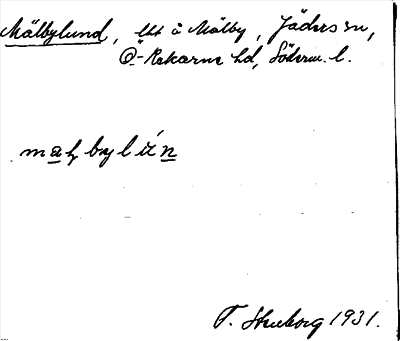 Mälbylund, lht å Mälby, Jäders sn,
Ö-Rekarne hd, Söderm. l.
maḷbylún
F. Skuborg 1931.